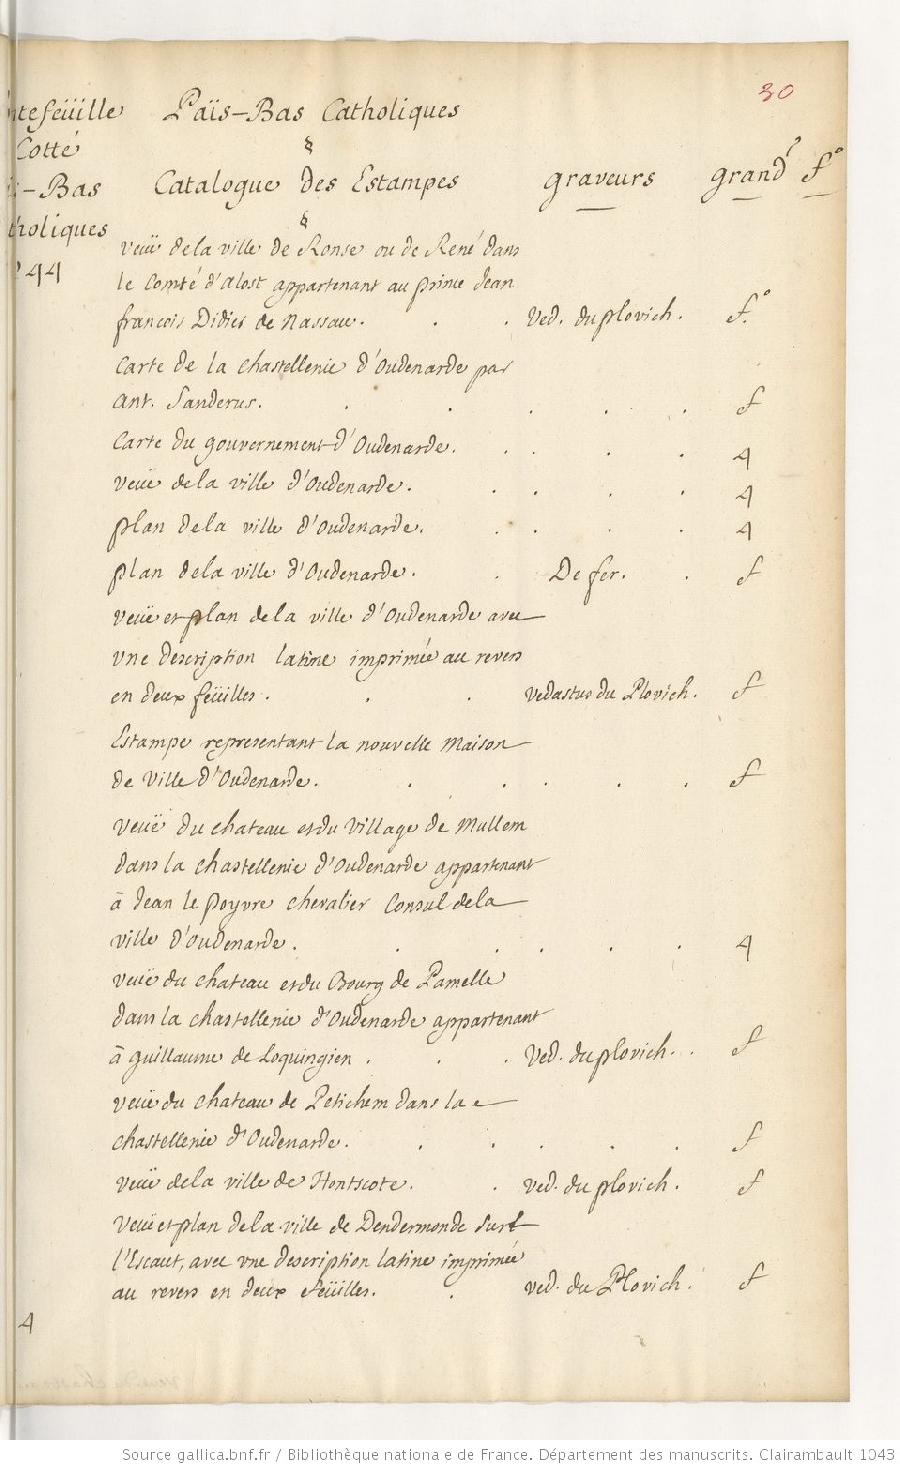 30
tefeüille Païs-Bas Catholiques
Cotté §
-Bas Catalogue Des Estampes graveurs grand f°
holiques §
244
veuë dela ville de Ronse ou de René dans
le Comté d'Alost appartenant au prince Jean
francois Didier de Nassau. . . Ved. du plovich. f.°
Carte de la Chastellenie d'Oudenarde par
Ant. Sanderus. . . . . . f
Carte du gouvernement d'Oudenarde. . . . . 4
veuë dela ville d'Oudenarde. . . . . 4
plan dela ville d'Oudenarde. . . . . 4
plan dela ville d'Oudenarde. . De fer. . f
Veuë et plan dela ville d'Oudenarde avec
vne description latine imprimée au revers
en deux feüilles. . . vedastus du Plovich. f
Estampe representant la nouvelle Maison
de Ville d'Oudenarde. . . . . . f
Veuë du chateau et du Village de Mullem
dans la chastellenie d'Oudenarde appartenant
à Jean le poyvre chevalier Consul dela
ville d'Oudenarde. . . . . . 4
veuë du chateau et du Bourg de Pamelle
dans la chastellenie d'Oudenarde appartenant
à guillaume de Loquingien . . . Ved. du plovich. . f
veuë du chateau de Petichem dans la
chastellenie d'Oudenarde. . . . . . f
Veuë dela ville de Hontscote. . ved. du plovich. f
Veuë et plan dela ville de Dendermonde sur
l'Escaut, avec vne description latine imprimée
au revers en deux feüilles. . ved. du Plovich. f
4
Source gallica.bnf.fr / Bibliothèque nationale de France. Département des manuscrits. Clairambault 1043